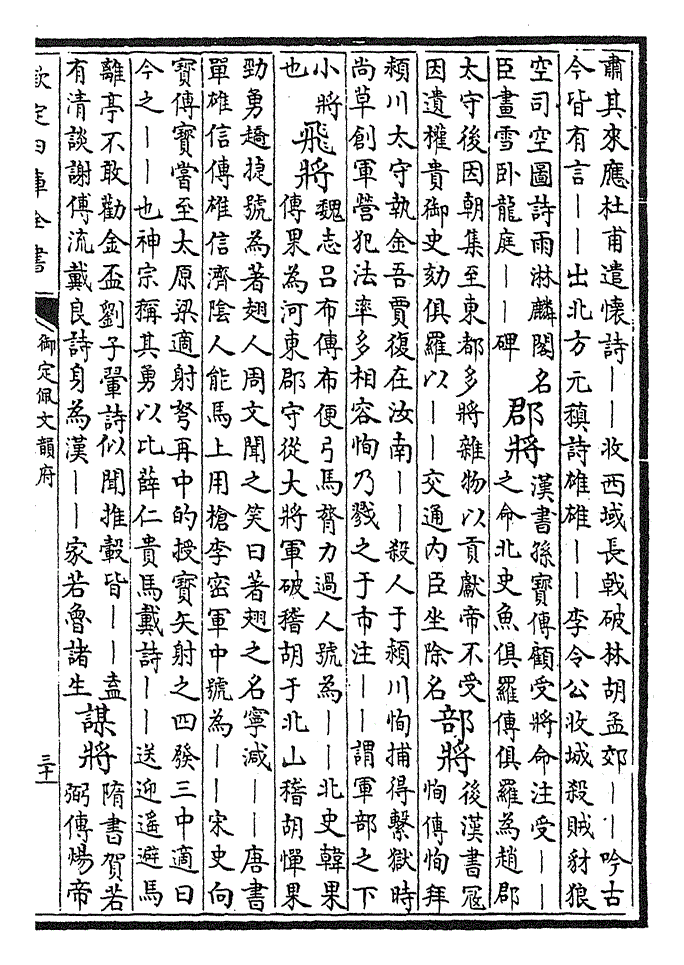 肅其來應杜甫遣懷詩——收西域長戟破林胡孟郊——吟古
今皆有言——出北方元稹詩雄雄——李令公收城殺賊豺狼
空司空圖詩雨淋麟閣名
臣畫雪卧龍庭——碑
郡將
漢書孫寶傳顧受將命注受——
之命北史魚俱羅傳俱羅為趙郡
太守後因朝集至東都多將雜物以貢獻帝不受
因遺權貴御史劾俱羅以——交通內臣坐除名
部將
後漢書冦
恂傳恂拜
潁川太守執金吾賈復在汝南——殺人于潁川恂捕得繫獄時
尚草創軍營犯法率多相容恂乃戮之于市注——謂軍部之下
小將
也
飛將
魏志呂布傳布便弓馬膂力過人號為——北史韓果
傳果為河東郡守從大將軍破稽胡于北山稽胡憚果
勁勇趫捷號為著翅人周文聞之笑曰著翅之名寧減——唐書
單雄信傳雄信濟陰人能馬上用槍李密軍中號為——宋史向
寶傳寶嘗至太原梁適射弩再中的授寶矢射之四發三中適曰
今之——也神宗稱其勇以比薛仁貴馬戴詩——送迎遙避馬
離亭不敢勸金盃劉子翬詩似聞推轂皆——盍
有清談謝傅流戴良詩身為漢——家若魯諸生
謀將
隋書賀若
弼傳煬帝
欽定四庫全書
御定佩文韻府
三十一